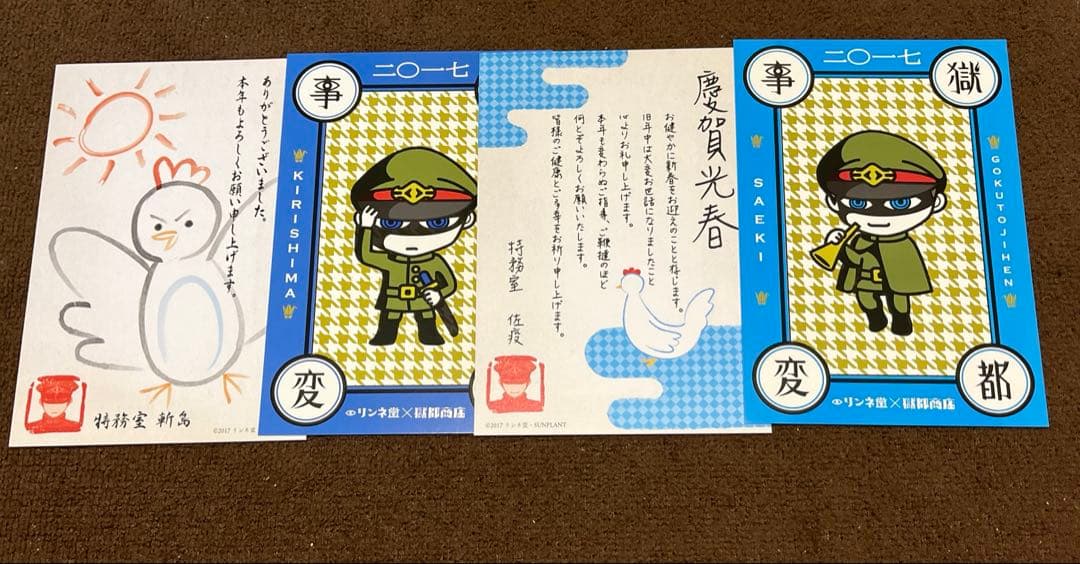 ありがとうございました。
本年もよろしくお願い申し上げます。
特務室 斬島
©2017 リンネ堂
二〇一七
事
KIRISHIMA
変
リンネ堂×獄都商店
慶賀光春
お健やかに新春をお迎えのことと存じます。
旧年中は大変お世話になりましたこと
心よりお礼申し上げます。
本年も変わらぬご指導、ご鞭撻のほど
何とぞよろしくお願いいたします。
皆様のご健康とご多幸をお祈り申し上げます。
特務室 佐疫
©2017 リンネ堂・SUNPLANT
二〇一七
事
獄
SAEKI
GOKUTOJIHEN
変
都
リンネ堂×獄都商店